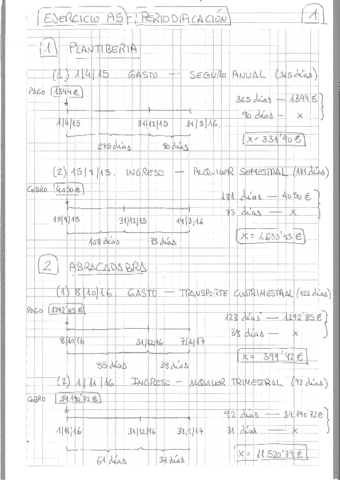 EJERCICIO A5: PERIODIFICACIÓN
1
1 PLANTIBERIA
(1) 1/4/15. GASTO — SEGURO ANUAL (365 días)
PAGO 1344€
365 días — 1344€
90 días — x
1/4/15 31/12/15 31/3/16
275 días 90 días
x = 331'40 €
(2) 15/9/15. INGRESO — ALQUILER SEMESTRAL (181 días)
COBRO 4050€
181 días — 4050€
73 días — x
15/9/15 31/12/15 14/3/16
108 días 73 días
x = 1.633'43 €
2 ABRACADABRA
(1) 8/10/16. GASTO — TRANSPORTE CUATRIMESTRAL (123 días)
PAGO 1292'85€
123 días — 1292'85€
38 días — x
8/10/16 31/12/16 7/2/17
85 días 38 días
x = 399'42 €
(2) 1/11/16 INGRESO — ALQUILER TRIMESTRAL (92 días)
COBRO 34.190'72€
92 días — 34.190'72€
31 días — x
1/11/16 31/12/16 31/1/17
61 días 31 días
x = 11.520'79 €